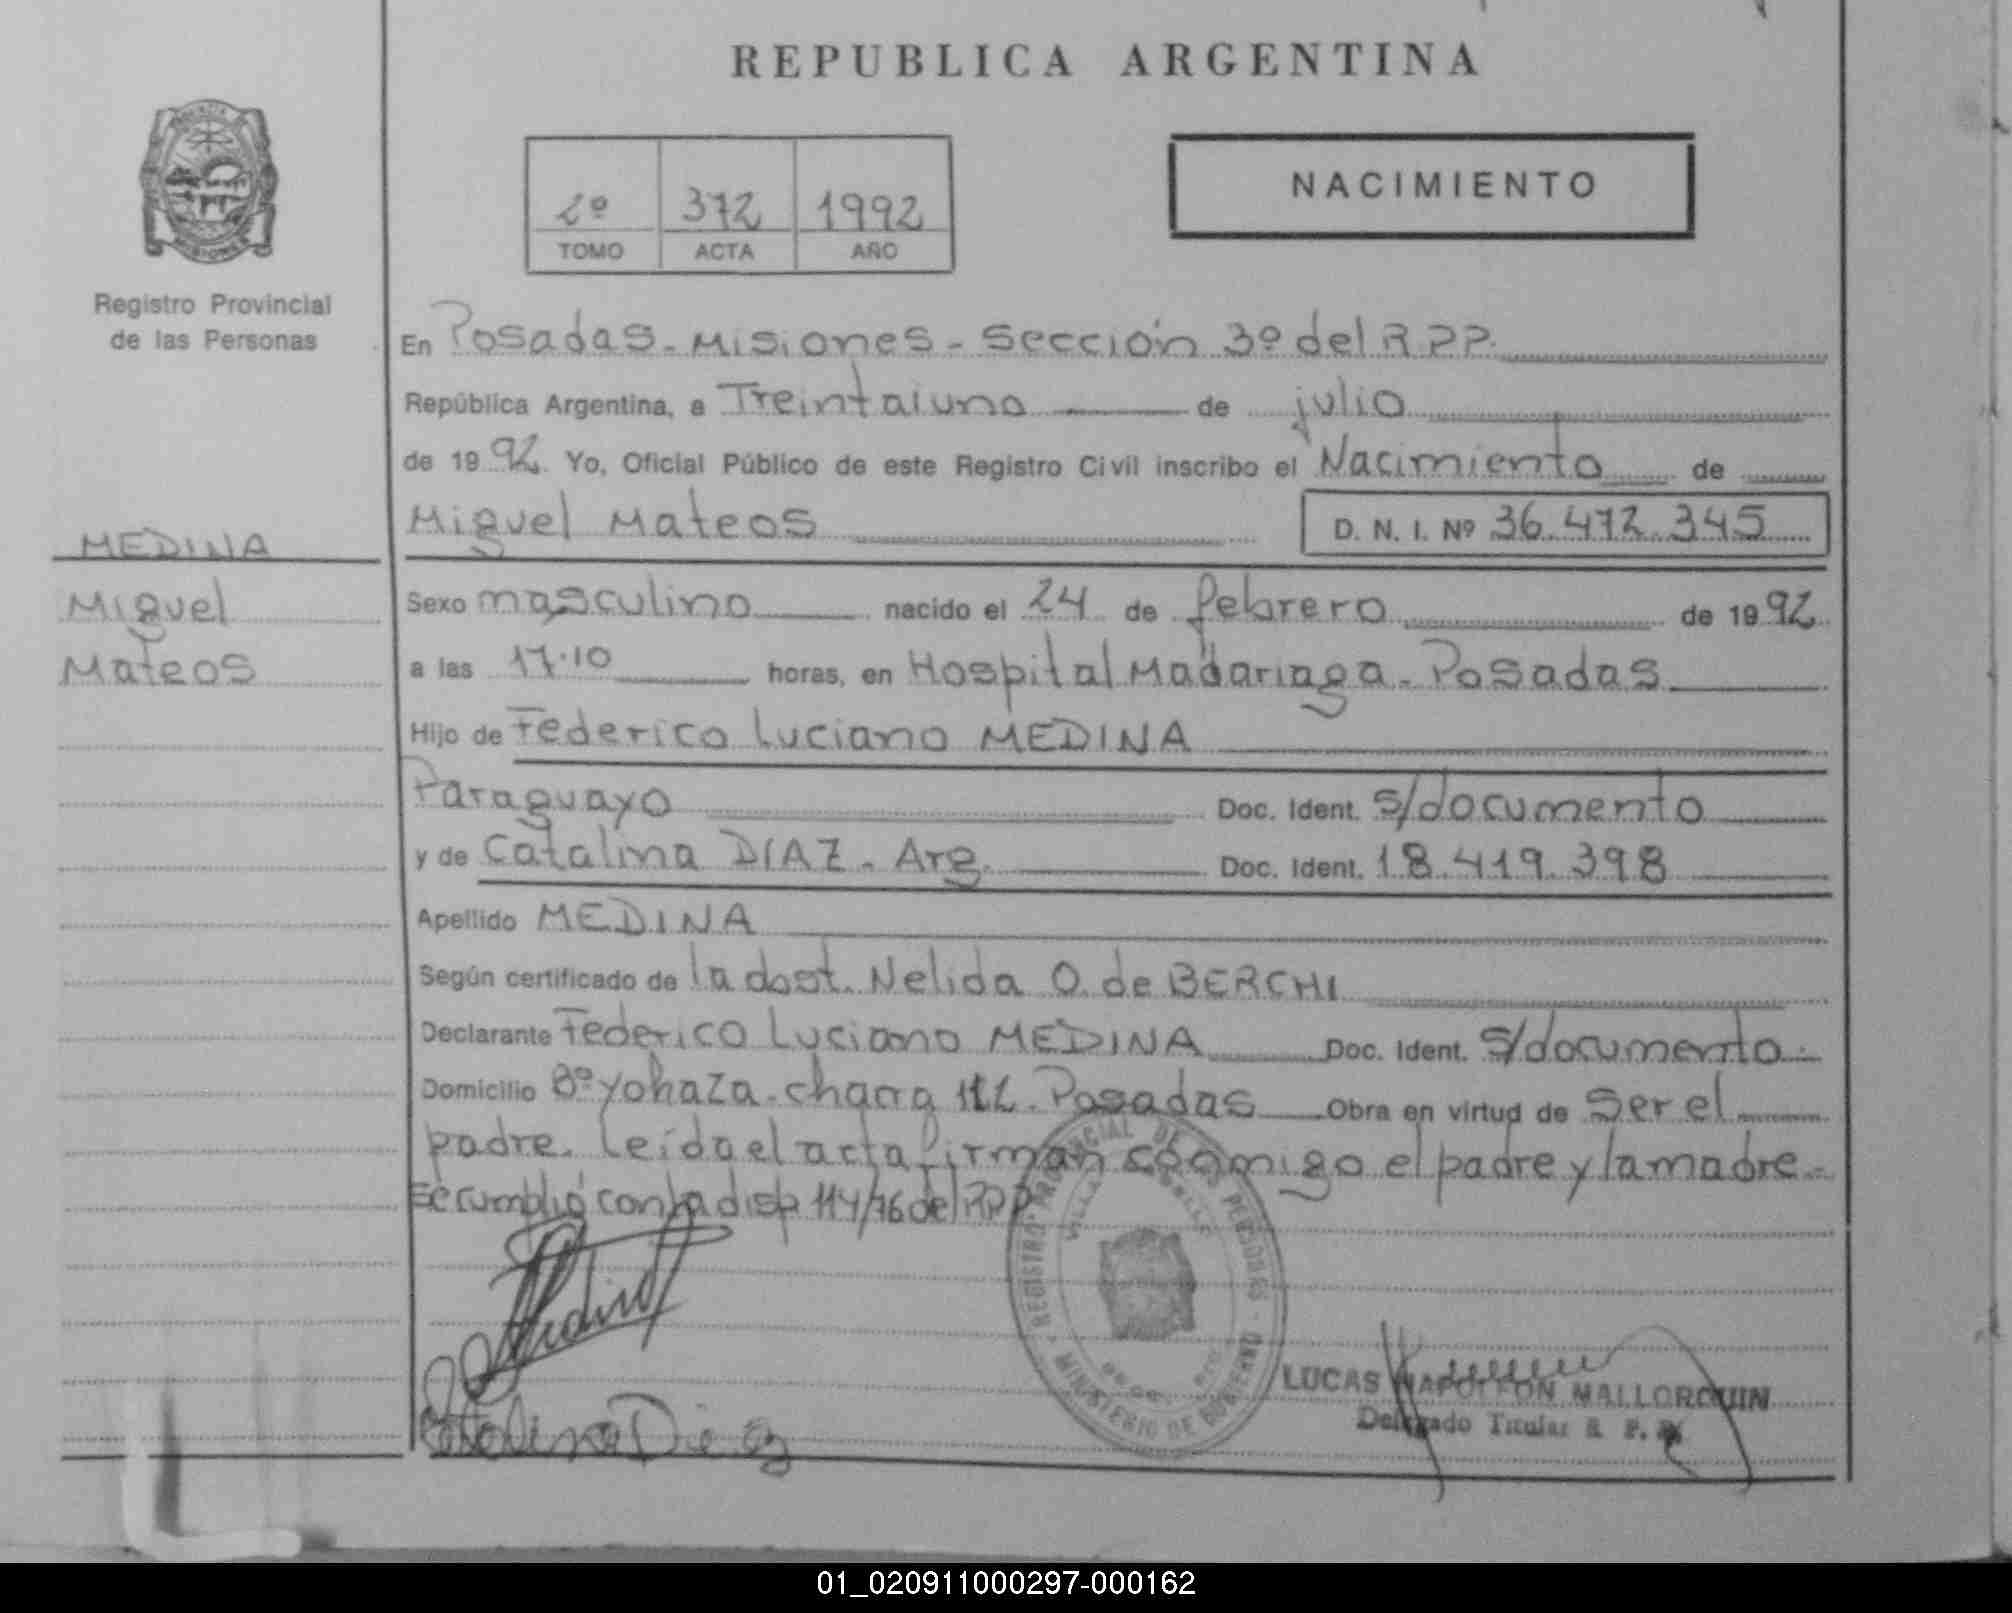 REPUBLICA ARGENTINA
2º 372 1992
TOMO ACTA AÑO
NACIMIENTO
Registro Provincial
de las Personas
MEDINA
Miguel
Mateos
En Posadas - Misiones - Sección 3º del R P P.
República Argentina, a Treintaiuno de julio
de 1992. Yo, Oficial Público de este Registro Civil inscribo el Nacimiento de
Miguel Mateos D. N. I. Nº 36.472.345
Sexo masculino nacido el 24 de febrero de 1992
a las 17.10 horas, en Hospital Madariaga - Posadas
Hijo de Federico Luciano MEDINA
Paraguayo Doc. Ident. s/documento
y de Catalina DIAZ - Arg. Doc. Ident. 18.419.398
Apellido MEDINA
Según certificado de la doct. Nelida O. de BERCHI
Declarante Federico Luciano MEDINA Doc. Ident. s/documento
Domicilio Bº Yohaza - chacra 112 - Posadas Obra en virtud de Ser el
padre. leída el acta firman conmigo el padre y la madre.-
Se cumplió con la disp 114/76 del RPP
REGISTRO PROVINCIAL DE LAS PERSONAS - MINISTERIO DE GOBIERNO
Medina
Catalina Diaz
LUCAS NAPOLEON MALLORQUIN
Delegado Titular R. P.
01_020911000297-000162